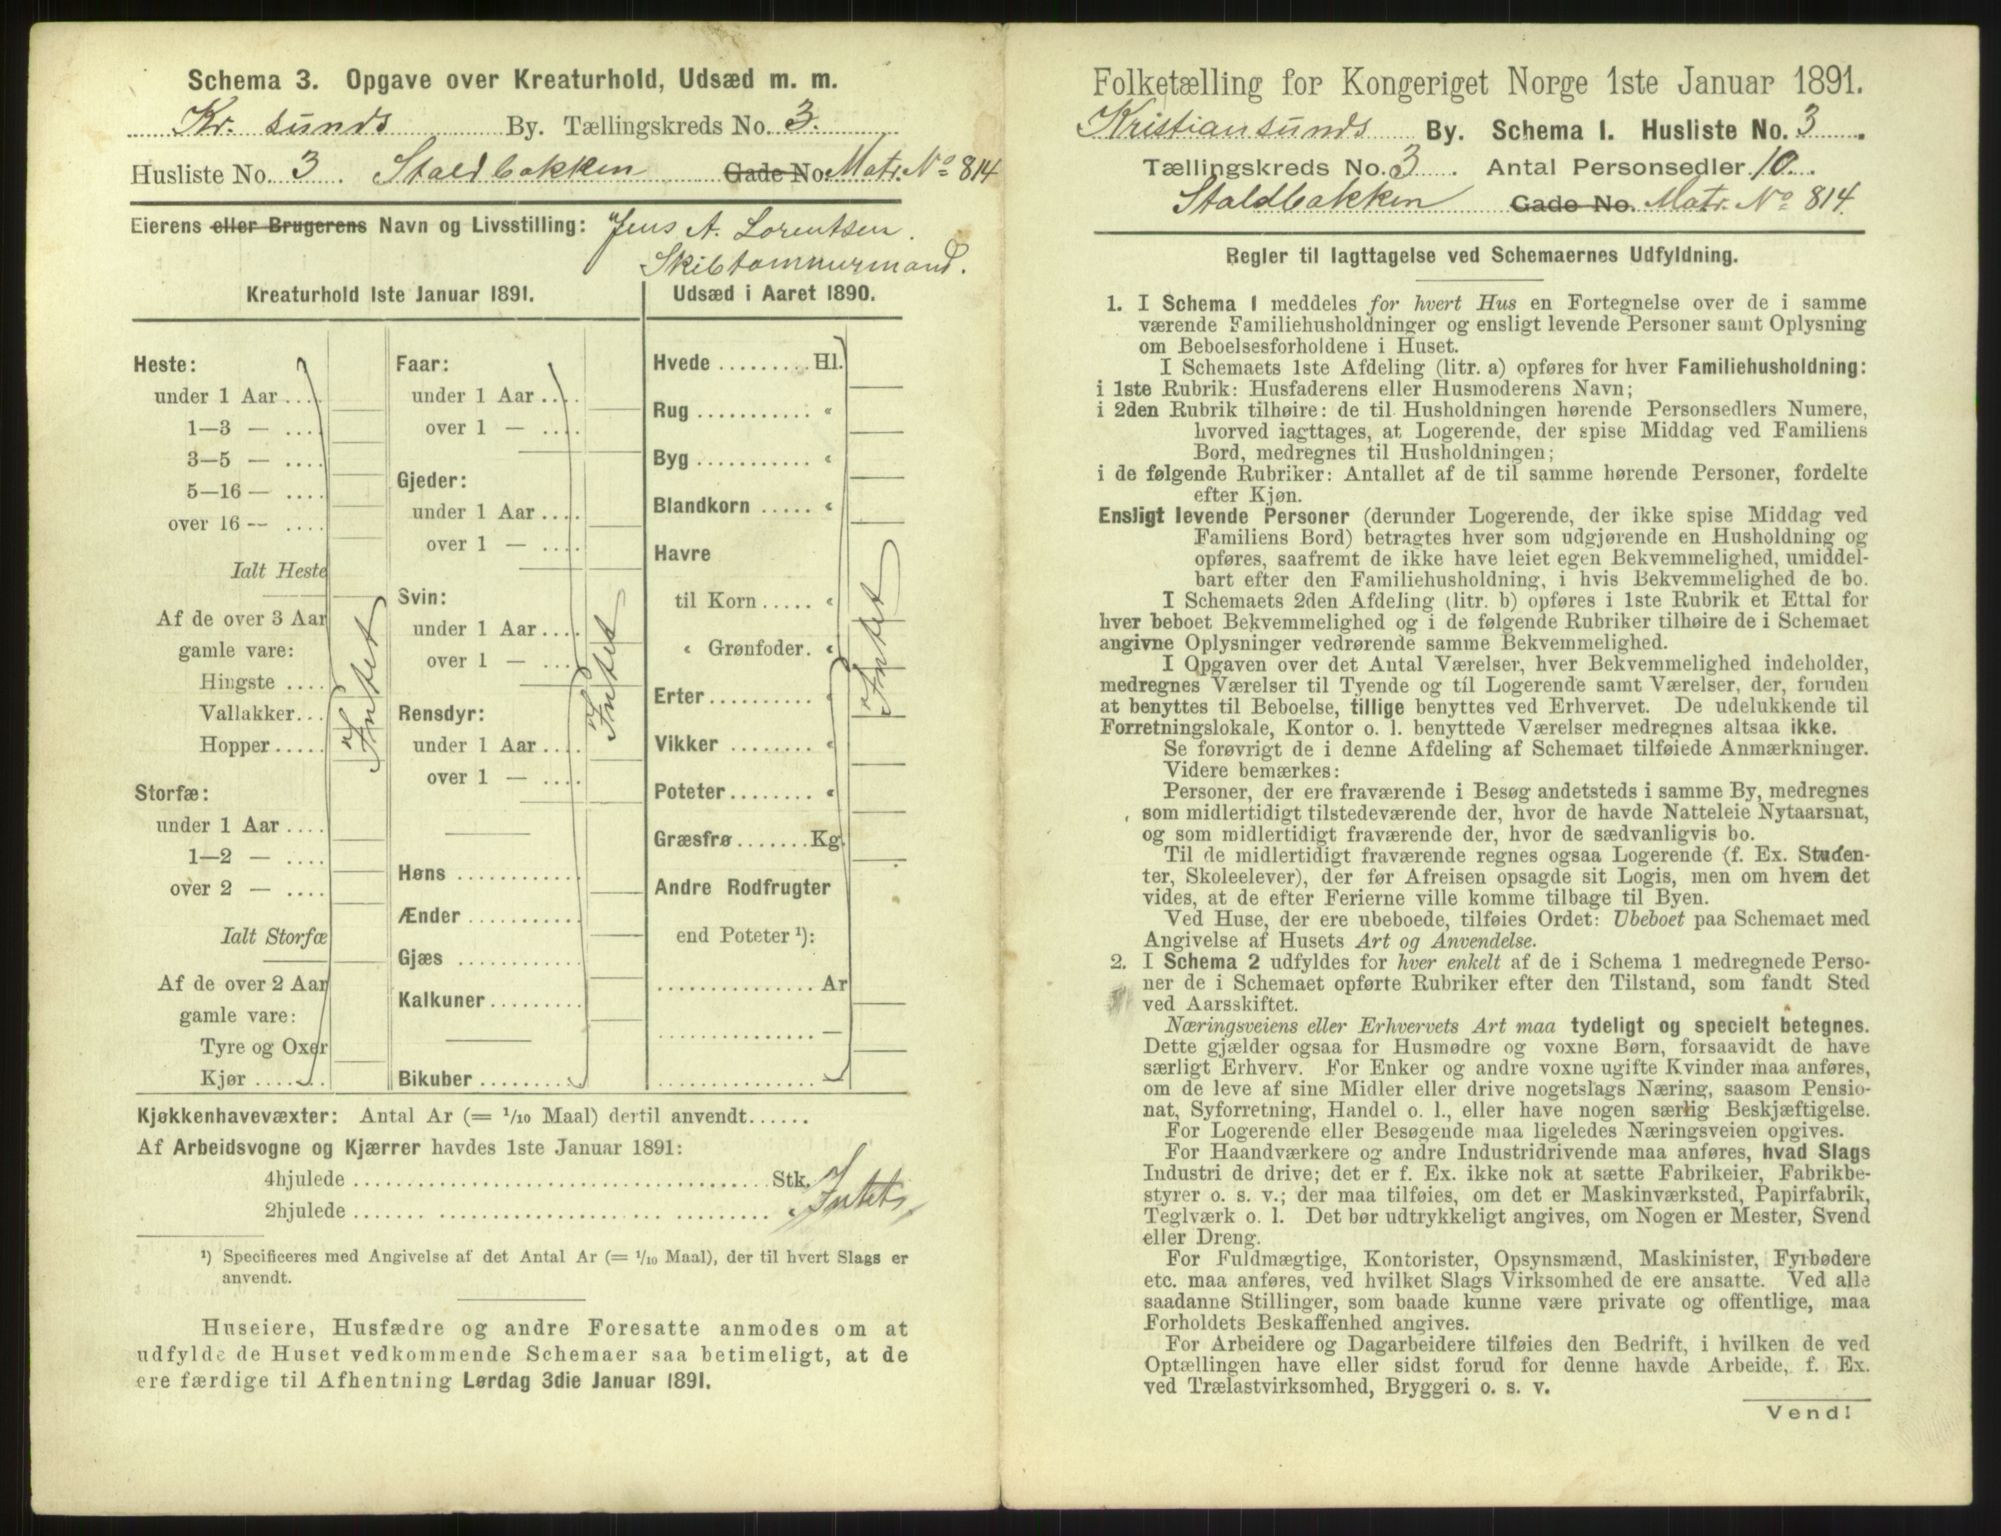 Schema 3. Opgave over Kreaturhold, Udsæd m. m.
Kr. sunds By. Tællingskreds No. 3.
Husliste No. 3. Staldbakken Gade No. Matr. No 814
Eierens eller Brugerens Navn og Livsstilling: Jens A. Lorentsen.
Skibtømmermand.
Kreaturhold 1ste Januar 1891.
Heste:
under 1 Aar ....
1—3 — ....
3—5 — ....
5—16 — ....
over 16 — ....
Ialt Heste
Af de over 3 Aar
gamle vare:
Hingste ....
Vallakker...
Hopper.....
Storfæ:
under 1 Aar ....
1—2 — ....
over 2 — ....
Ialt Storfæ
Af de over 2 Aar
gamle vare:
Tyre og Oxer
Kjør ........
Intet
Faar:
under 1 Aar ....
over 1 — ....
Gjeder:
under 1 Aar ....
over 1 — ....
Svin:
under 1 Aar ....
over 1 — ....
Rensdyr:
under 1 Aar ....
over 1 — ....
Høns ............
Ænder ...........
Gjæs ............
Kalkuner.........
Bikuber ..........
Intet
Udsæd i Aaret 1890.
Hvede ......... Hl.
Rug ........... "
Byg ........... "
Blandkorn ..... "
Havre
til Korn ..... "
" Grønfoder. "
Erter .......... "
Vikker ........ "
Poteter........ "
Græsfrø ....... Kg.
Andre Rodfrugter
end Poteter ¹):
............... Ar
............... —
............... —
Intet
Kjøkkenhavevæxter: Antal Ar (= 1/10 Maal) dertil anvendt......
Af Arbeidsvogne og Kjærrer havdes 1ste Januar 1891:
4hjulede ........................................ Stk.
2hjulede ........................................
Intet
¹) Specificeres med Angivelse af det Antal Ar (= 1/10 Maal), der til hvert Slags er
anvendt.
Huseiere, Husfædre og andre Foresatte anmodes om at
udfylde de Huset vedkommende Schemaer saa betimeligt, at de
ere færdige til Afhentning Lørdag 3die Januar 1891.
Folketælling for Kongeriget Norge 1ste Januar 1891.
Kristiansunds By. Schema 1. Husliste No. 3.
Tællingskreds No. 3. Antal Personsedler 10.
Staldbakken Gade No. Matr. No 814.
Regler til Iagttagelse ved Schemaernes Udfyldning.
1. I Schema 1 meddeles for hvert Hus en Fortegnelse over de i samme
værende Familiehusholdninger og ensligt levende Personer samt Oplysning
om Beboelsesforholdene i Huset.
I Schemaets 1ste Afdeling (litr. a) opføres for hver Familiehusholdning:
i 1ste Rubrik: Husfaderens eller Husmoderens Navn;
i 2den Rubrik tilhøire: de til Husholdningen hørende Personsedlers Numere,
hvorved iagttages, at Logerende, der spise Middag ved Familiens
Bord, medregnes til Husholdningen;
i de følgende Rubriker: Antallet af de til samme hørende Personer, fordelte
efter Kjøn.
Ensligt levende Personer (derunder Logerende, der ikke spise Middag ved
Familiens Bord) betragtes hver som udgjørende en Husholdning og
opføres, saafremt de ikke have leiet egen Bekvemmelighed, umiddel-
bart efter den Familiehusholdning, i hvis Bekvemmelighed de bo.
I Schemaets 2den Afdeling (litr. b) opføres i 1ste Rubrik et Ettal for
hver beboet Bekvemmelighed og i de følgende Rubriker tilhøire de i Schemaet
angivne Oplysninger vedrørende samme Bekvemmelighed.
I Opgaven over det Antal Værelser, hver Bekvemmelighed indeholder,
medregnes Værelser til Tyende og til Logerende samt Værelser, der, foruden
at benyttes til Beboelse, tillige benyttes ved Erhvervet. De udelukkende til
Forretningslokale, Kontor o. l. benyttede Værelser medregnes altsaa ikke.
Se forøvrigt de i denne Afdeling af Schemaet tilføiede Anmærkninger.
Videre bemærkes:
Personer, der ere fraværende i Besøg andetsteds i samme By, medregnes
som midlertidigt tilstedeværende der, hvor de havde Natteleie Nytaarsnat,
og som midlertidigt fraværende der, hvor de sædvanligvis bo.
Til de midlertidigt fraværende regnes ogsaa Logerende (f. Ex. Studen-
ter, Skoleelever), der før Afreisen opsagde sit Logis, men om hvem det
vides, at de efter Ferierne ville komme tilbage til Byen.
Ved Huse, der ere ubeboede, tilføies Ordet: Ubeboet paa Schemaet med
Angivelse af Husets Art og Anvendelse.
2. I Schema 2 udfyldes for hver enkelt af de i Schema 1 medregnede Perso-
ner de i Schemaet opførte Rubriker efter den Tilstand, som fandt Sted
ved Aarsskiftet.
Næringsveiens eller Erhvervets Art maa tydeligt og specielt betegnes.
Dette gjælder ogsaa for Husmødre og voxne Børn, forsaavidt de have
særligt Erhverv. For Enker og andre voxne ugifte Kvinder maa anføres,
om de leve af sine Midler eller drive nogetslags Næring, saasom Pensio-
nat, Syforretning, Handel o. l., eller have nogen særlig Beskjæftigelse.
For Logerende eller Besøgende maa ligeledes Næringsveien opgives.
For Haandværkere og andre Industridrivende maa anføres, hvad Slags
Industri de drive; det er f. Ex. ikke nok at sætte Fabrikeier, Fabrikbe-
styrer o. s. v.; der maa tilføies, om det er Maskinværksted, Papirfabrik,
Teglværk o. l. Det bør udtrykkeligt angives, om Nogen er Mester, Svend
eller Dreng.
For Fuldmægtige, Kontorister, Opsynsmænd, Maskinister, Fyrbødere
etc. maa anføres, ved hvilket Slags Virksomhed de ere ansatte. Ved alle
saadanne Stillinger, som baade kunne være private og offentlige, maa
Forholdets Beskaffenhed angives.
For Arbeidere og Dagarbeidere tilføies den Bedrift, i hvilken de ved
Optællingen have eller sidst forud for denne havde Arbeide, f. Ex.
ved Trælastvirksomhed, Bryggeri o. s. v.
Vend!